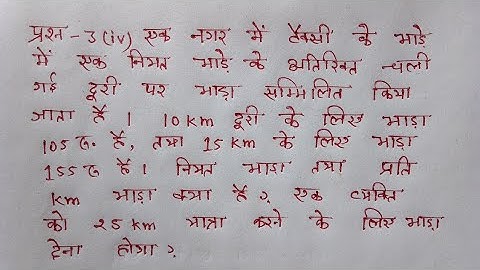 प्रश्न - 3 (iv) एक नगर में टैक्सी के भाड़े
में एक नियत भाड़े के अतिरिक्त चली
गई दूरी पर भाड़ा सम्मिलित किया
जाता है । 10 km दूरी के लिए भाड़ा
105 रु. है, तथा 15 km के लिए भाड़ा
155 रु है । नियत भाड़ा तथा प्रति
km भाड़ा क्या है ? एक व्यक्ति
को 25 km यात्रा करने के लिए भाड़ा
देना होगा ?